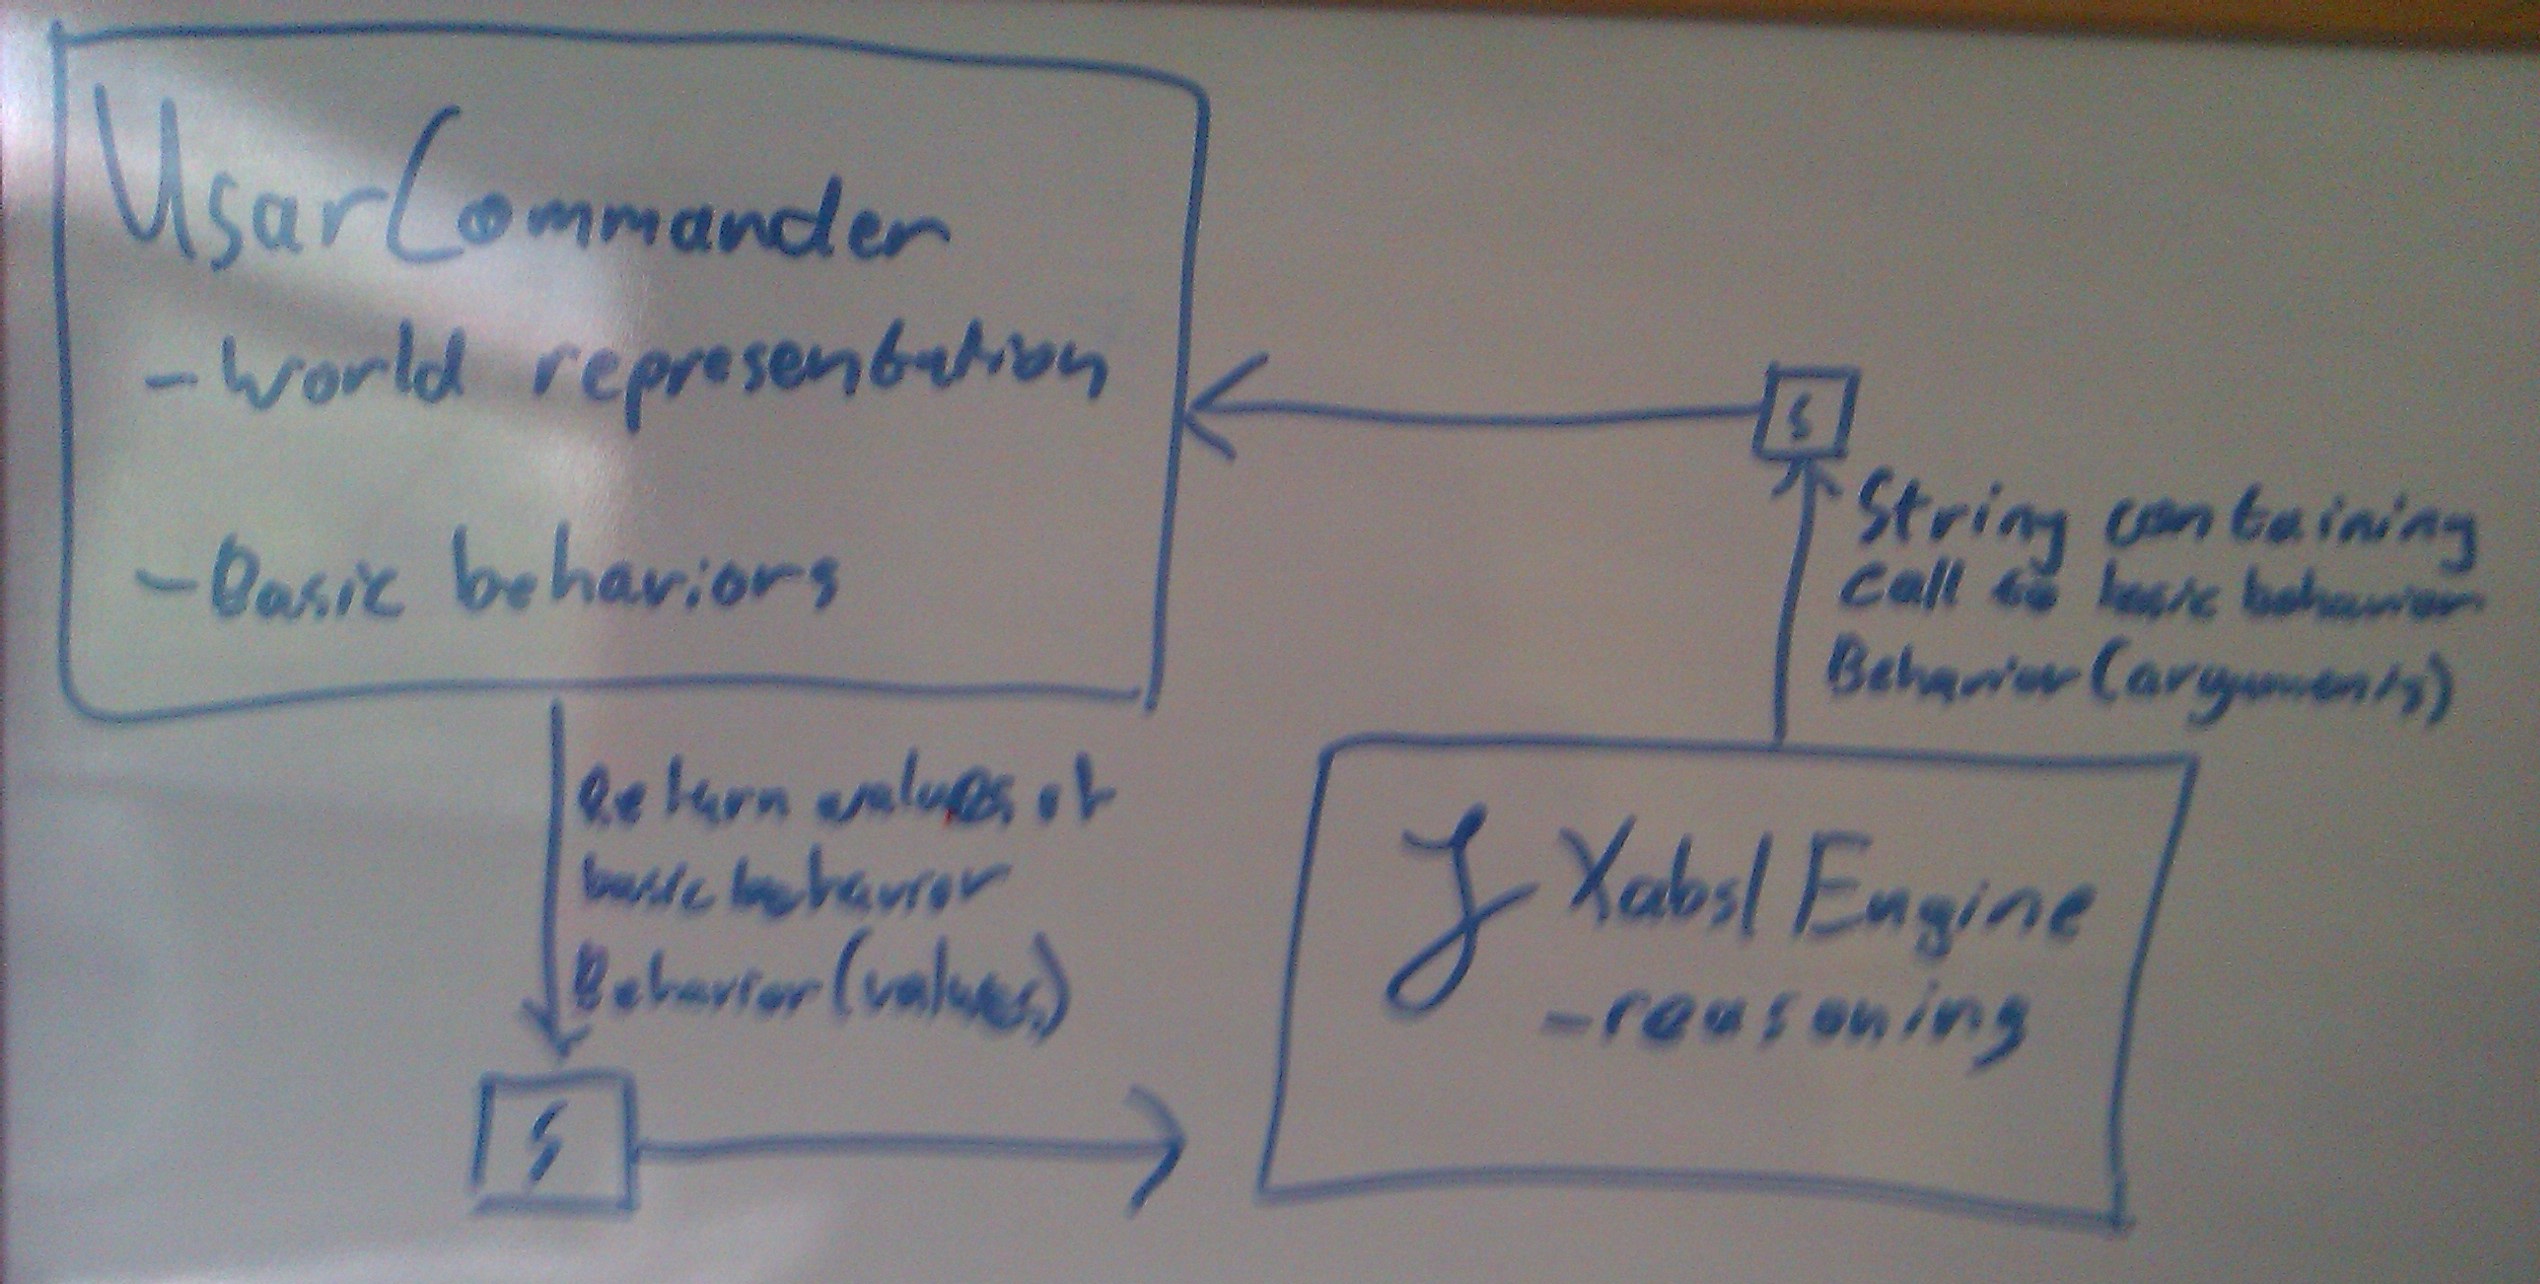 UsarCommander
- World representation
- Basic behaviors
S
String containing
Call to basic behavior
Behavior (arguments)
Return values of
basic behavior
Behavior (values)
S
J Xabsl Engine
- reasoning